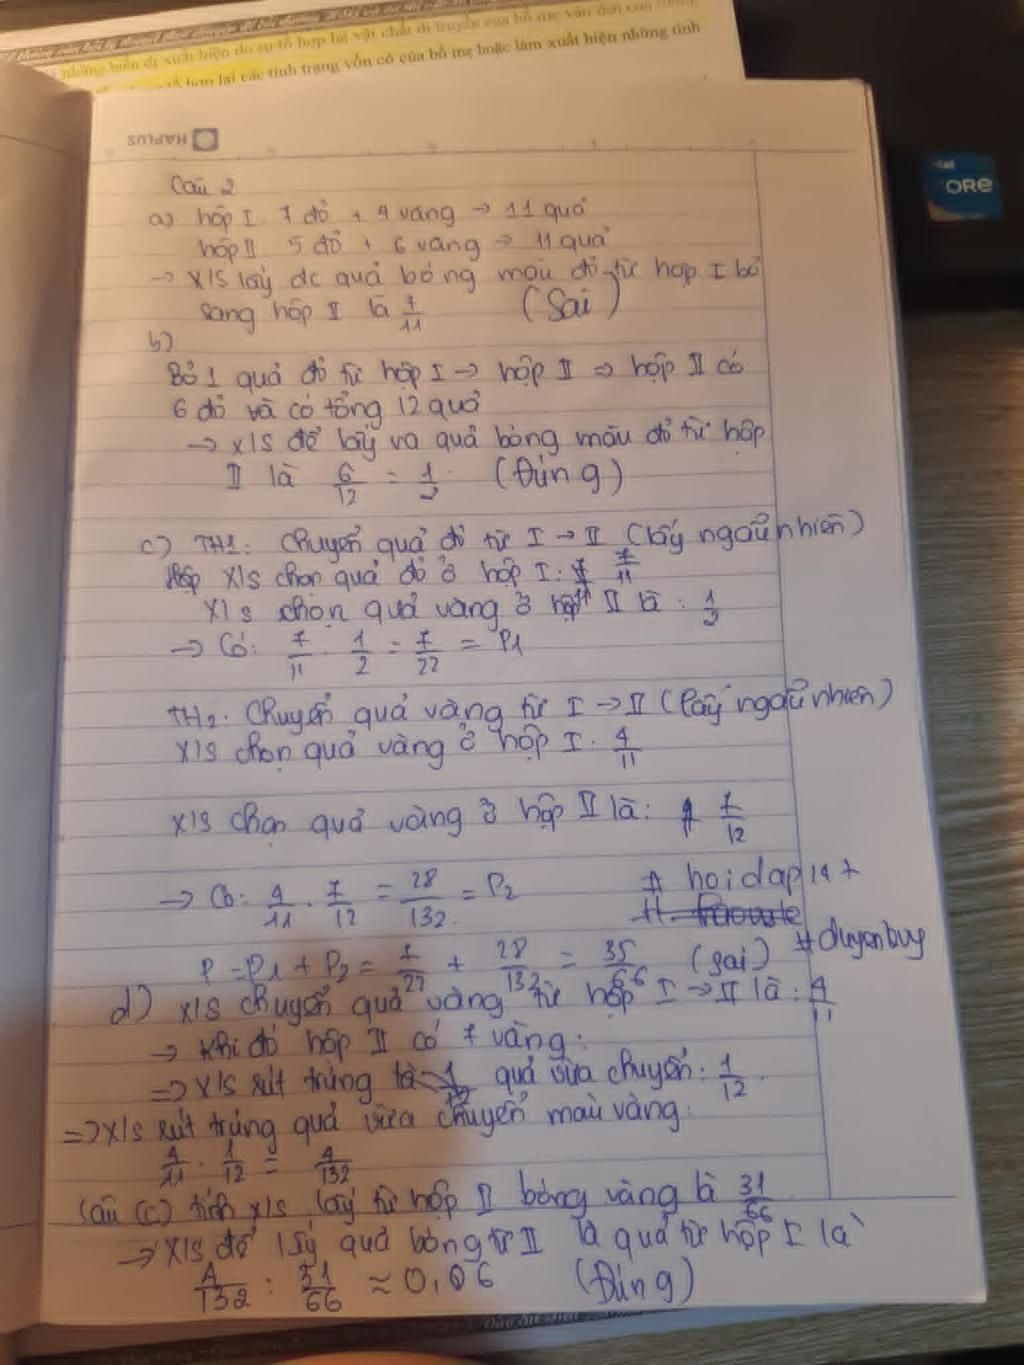 những biến dị xuất hiện do sự tổ hợp lại vật chất di truyền của bố mẹ vốn
hợp lại các tính trạng vốn có của bố mẹ hoặc làm xuất hiện những tính
HAPLUS
ORe
Câu 2
a) hộp I. 7 đỏ + 4 vàng → 11 quả
hộp II 5 đỏ + 6 vàng → 11 quả
→ X/S lấy dc quả bóng màu đỏ từ hộp I bỏ
sang hộp II là 7/11 (Sai)
b)
Bỏ 1 quả đỏ từ hộp I → hộp II ⇒ hộp II có
6 đỏ và có tổng 12 quả
→ X/S để lấy ra quả bóng màu đỏ từ hộp
II là 6/12 = 1/2 (Đúng)
c) TH1: Chuyển quả đỏ từ I → II (lấy ngẫu nhiên)
X/S chọn quả đỏ ở hộp I: 7/11
X/S chọn quả vàng ở hộp II là: 1/2
→ Có: 7/11 . 1/2 = 7/22 = P1
TH2: Chuyển quả vàng từ I → II (lấy ngẫu nhiên)
X/S chọn quả vàng ở hộp I. 4/11
X/S chọn quả vàng ở hộp II là: 7/12
→ Có: 4/11 . 7/12 = 28/132 = P2
# hoidap14+
#duyenbuy
P = P1 + P2 = 7/22 + 28/132 = 35/66 (sai)
d) X/S chuyển quả vàng từ hộp I → II là: 4/11
→ Khi đó hộp II có 7 vàng.
⇒ X/S rút trúng quả vừa chuyển: 1/12.
⇒ X/S rút trúng quả vừa chuyển màu vàng.
4/11 . 1/12 = 4/132
Câu (c) tính X/S lấy từ hộp II bóng vàng là 31/66
→ X/S để lấy quả bóng từ II là quả từ hộp I là
4/132 : 31/66 ≈ 0,06 (Đúng)